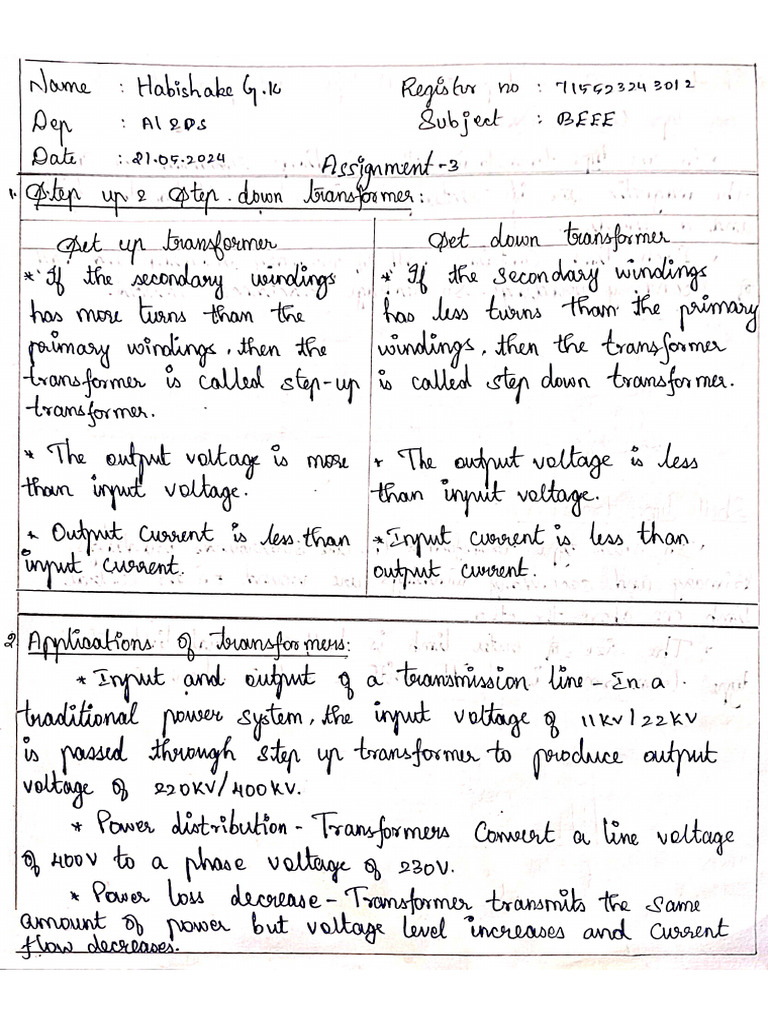 Name : Habishake G.K Register no : 715523243012
Dep : AI & DS Subject : BEEE
Date : 21.05.2024 Assignment-3
1. Step up & Step down transformer:
Set up transformer
* If the secondary windings
has more turns than the
primary windings, then the
transformer is called step-up
transformer.
* The output voltage is more
than input voltage.
* Output current is less than
input current.
Set down transformer
* If the secondary windings
has less turns than the primary
windings, then the transformer
is called step down transformer.
* The output voltage is less
than input voltage.
* Input current is less than
output current.
2. Applications of transformers:
* Input and output of a transmission line - In a
traditional power system, the input voltage of 11KV/22KV
is passed through step up transformer to produce output
voltage of 220KV/400KV.
* Power distribution - Transformers Convert a line voltage
of 400V to a phase voltage of 230V.
* Power loss decrease - Transformer transmits the same
amount of power but voltage level increases and current
flow decreases.